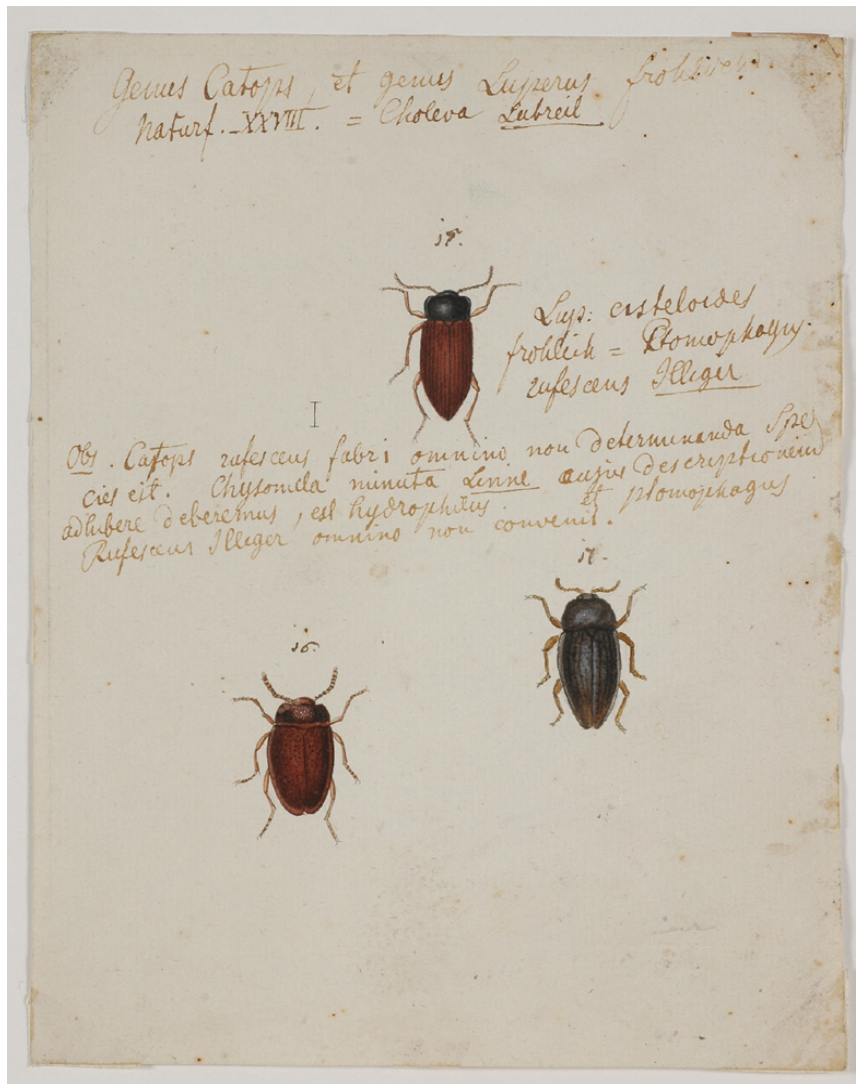 Genus Catops, et genus Luperus frohlich
Naturf. XXVIII. = Choleva Latreil
15.
Lup: cisteloides
frohlich = Ptomophagus
rufescens Illiger
Obs. Catops rufescens fabri omnino non determinanda Spe
cies est. Chysomela minuta Linne cujus descriptionem
adhibere deberemus, est hydrophilus. et ptomophagus
Rufescens Illiger omnino non convenit.
17.
16.